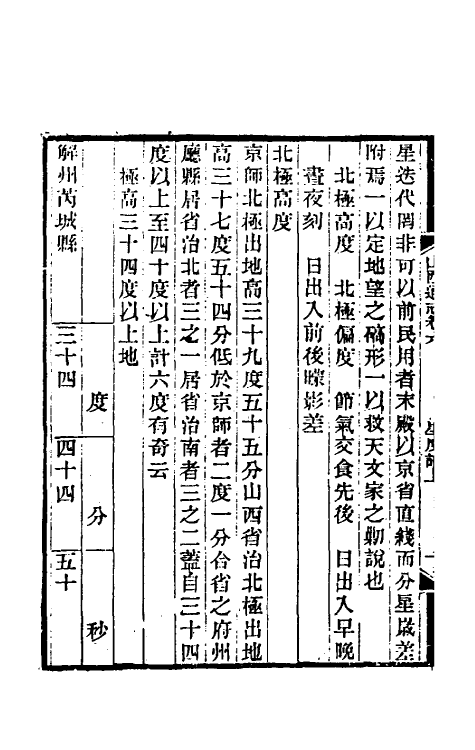 星迭代罔非可以前民用者末殿以京省直綫而分星歲差
附焉一以定地望之碻形一以救天文家之勦說也
北極高度　北極偏度　節氣交食先後　日出入早晚
晝夜刻　日出入前後矇影差
北極高度
京師北極出地高三十九度五十五分山西省治北極出地
高三十七度五十四分低於京師者二度一分合省之府州
廳縣居省治北者三之一居省治南者三之二蓋自三十四
度以上至四十度以上計六度有奇云
極高三十四度以上地
度　分　秒
解州芮城縣　三十四　四十四　五十
山西通志卷六　星度譜上